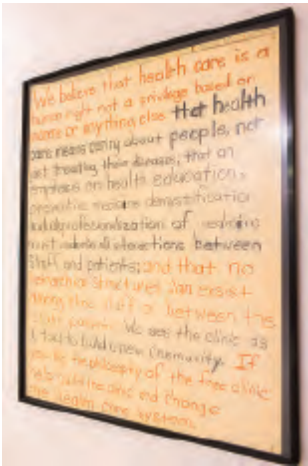 We believe that health care is a
human right not a privilege based on
or anything else that health
care means caring about people, not
just treating their diseases, that an
emphasis on health education,
preventive medicine demystification
and deprofessionalization of medicine
must underlie all interactions between
staff and patients; and that no
hierarchical structures can exist
among clinic staff or between the
We see the clinic as
a tool to build a new community. If
you like the philosophy of the free clinic
help build the clinic and change
the health care system.